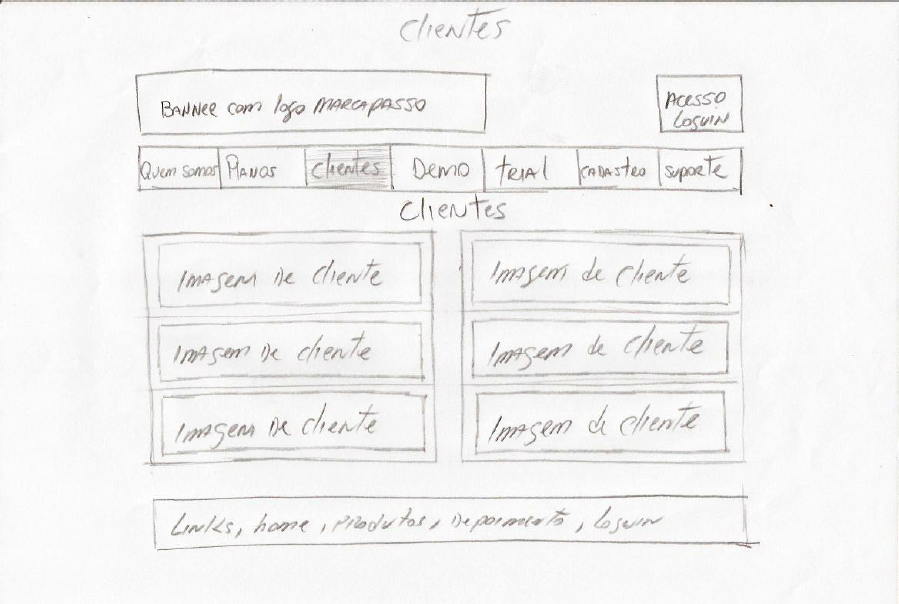 Clientes
BANNER com logo MARCAPASSO
ACESSO
LOGUIN
Quem somos PlANOS Clientes Demo tRIAl CADASTRO suporte
Clientes
IMAGEM DE cliente
IMAGEM de cliente
IMAGEM DE cliente
IMAGEM de cliente
IMAGEM DE cliente
IMAGEM de cliente
Links, home, PRodutos, Depoimento, LOGUIN